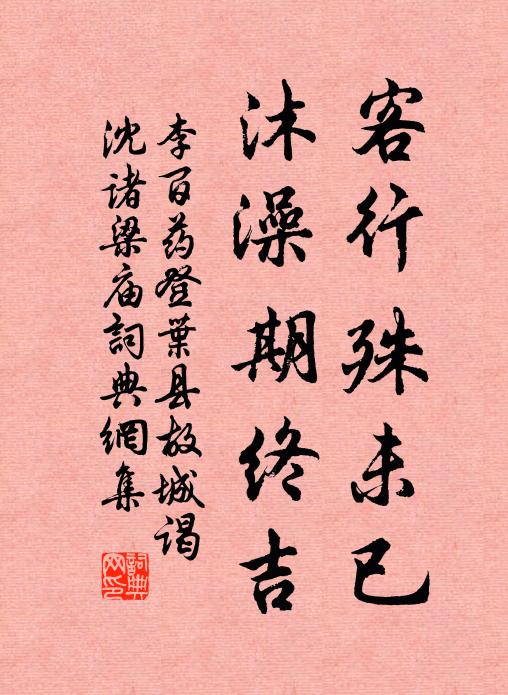 客行殊未已
沐澡期终吉
李百药登葉县故城谒
沈诸梁庙詞典網集
詞典
网印